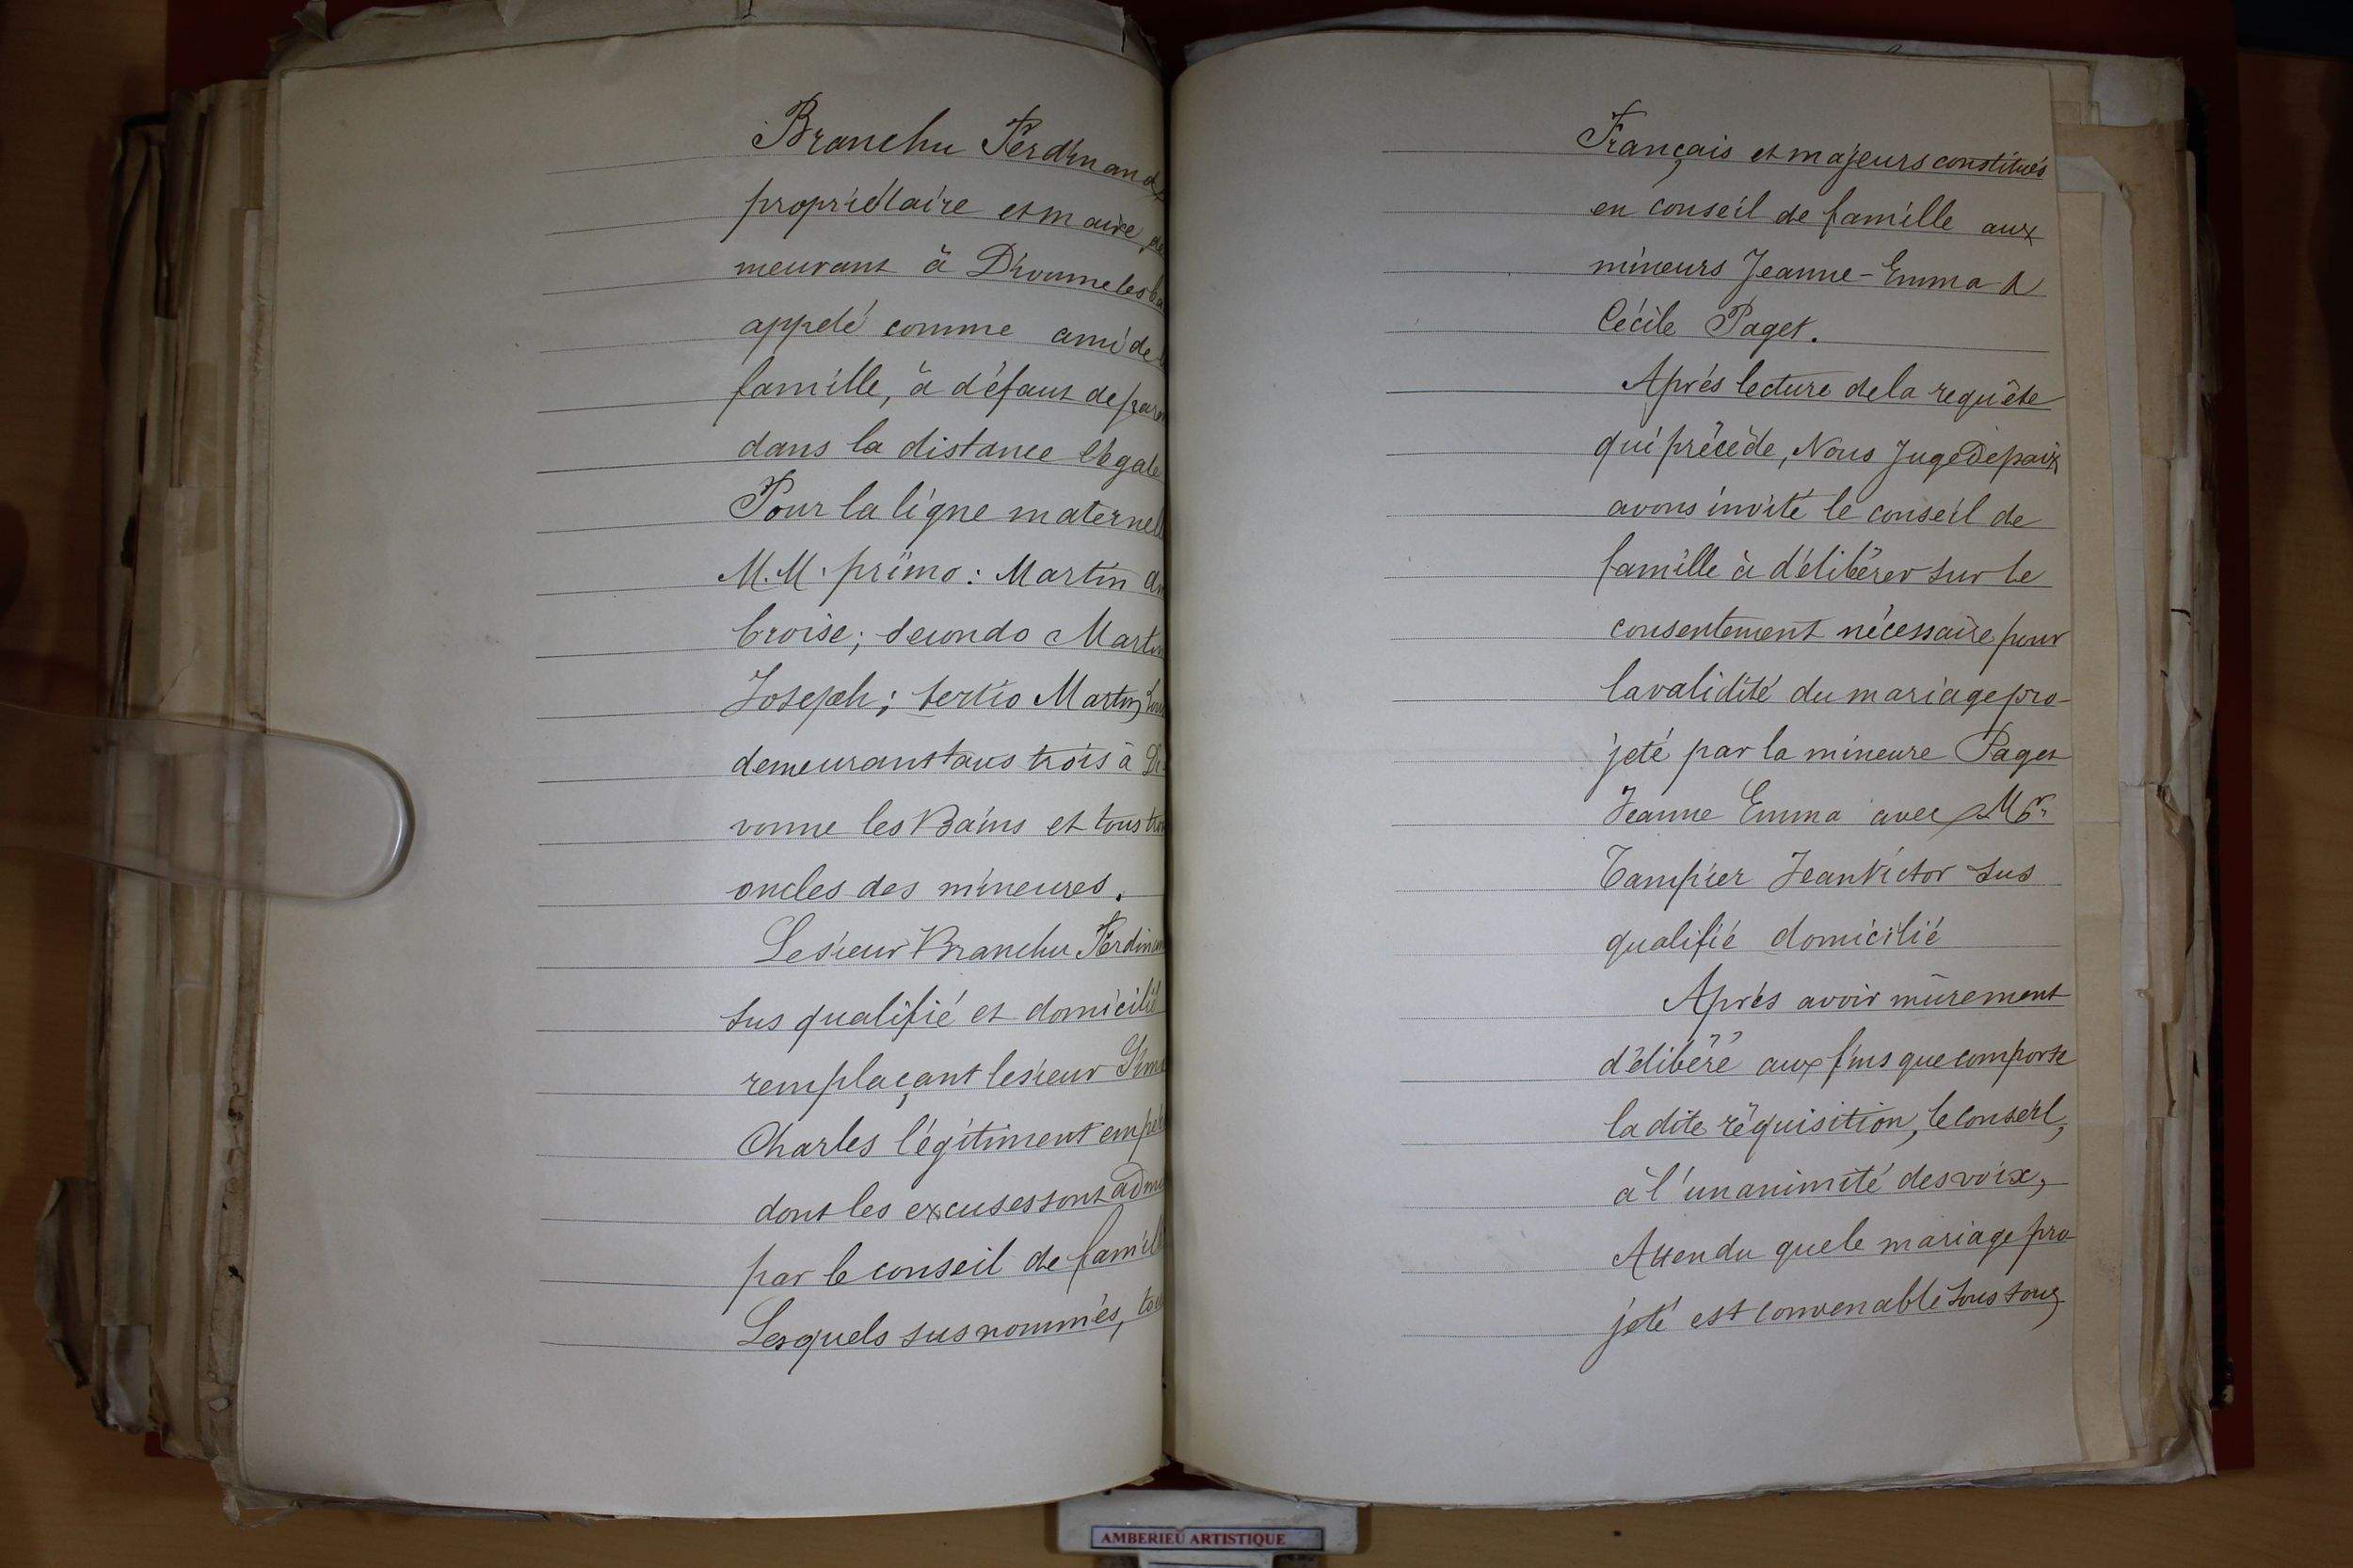 Branchu Ferdinand
propriétaire et maire, de
meurant à Divonne les Ba
appelé comme ami de la
famille, à défaut de paren
dans la distance légale
Pour la ligne maternell
M.M. primo : Martin Am
broise ; secundo Martin
Joseph ; tertio Martin
demeurant tous trois à Di
vonne les Bains et tous troi
oncles des mineures.
Le sieur Branchu Ferdinan
sus qualifié et domicilié
remplaçant le sieur
Charles légitiment empê
dont les excuses sont admi
par le conseil de famill
Lesquels sus nommés, tou
Français et majeurs constitués
en conseil de famille aux
mineurs Jeanne-Emma &
Cécile Paget.
Après lecture de la requête
qui précède, Nous Juge de paix
avons invité le conseil de
famille à délibérer sur le
consentement nécessaire pour
la validité du mariage pro-
jeté par la mineure Paget
Jeanne Emma avec Mr
Tampier Jean Victor sus
qualifié domicilié
Après avoir mûrement
délibéré aux fins que comporte
la dite réquisition, le conseil,
à l'unanimité des voix,
Attendu que le mariage pro
jeté est convenable sous tous
AMBERIEU ARTISTIQUE